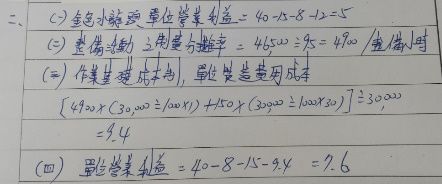 二、(一) 金色水龍頭單位營業利益 = 40-15-8-12=5
(二) 整備活動之制費分攤率 = 46,500÷95 = 4900/整備小時
(三) 作業基礎成本制,單位製造費用成本
[4900×(30,000÷100×1)+150×(30,000÷100×30)]÷30,000
=9.4
(四) 單位營業利益 = 40-8-15-9.4 = 7.6